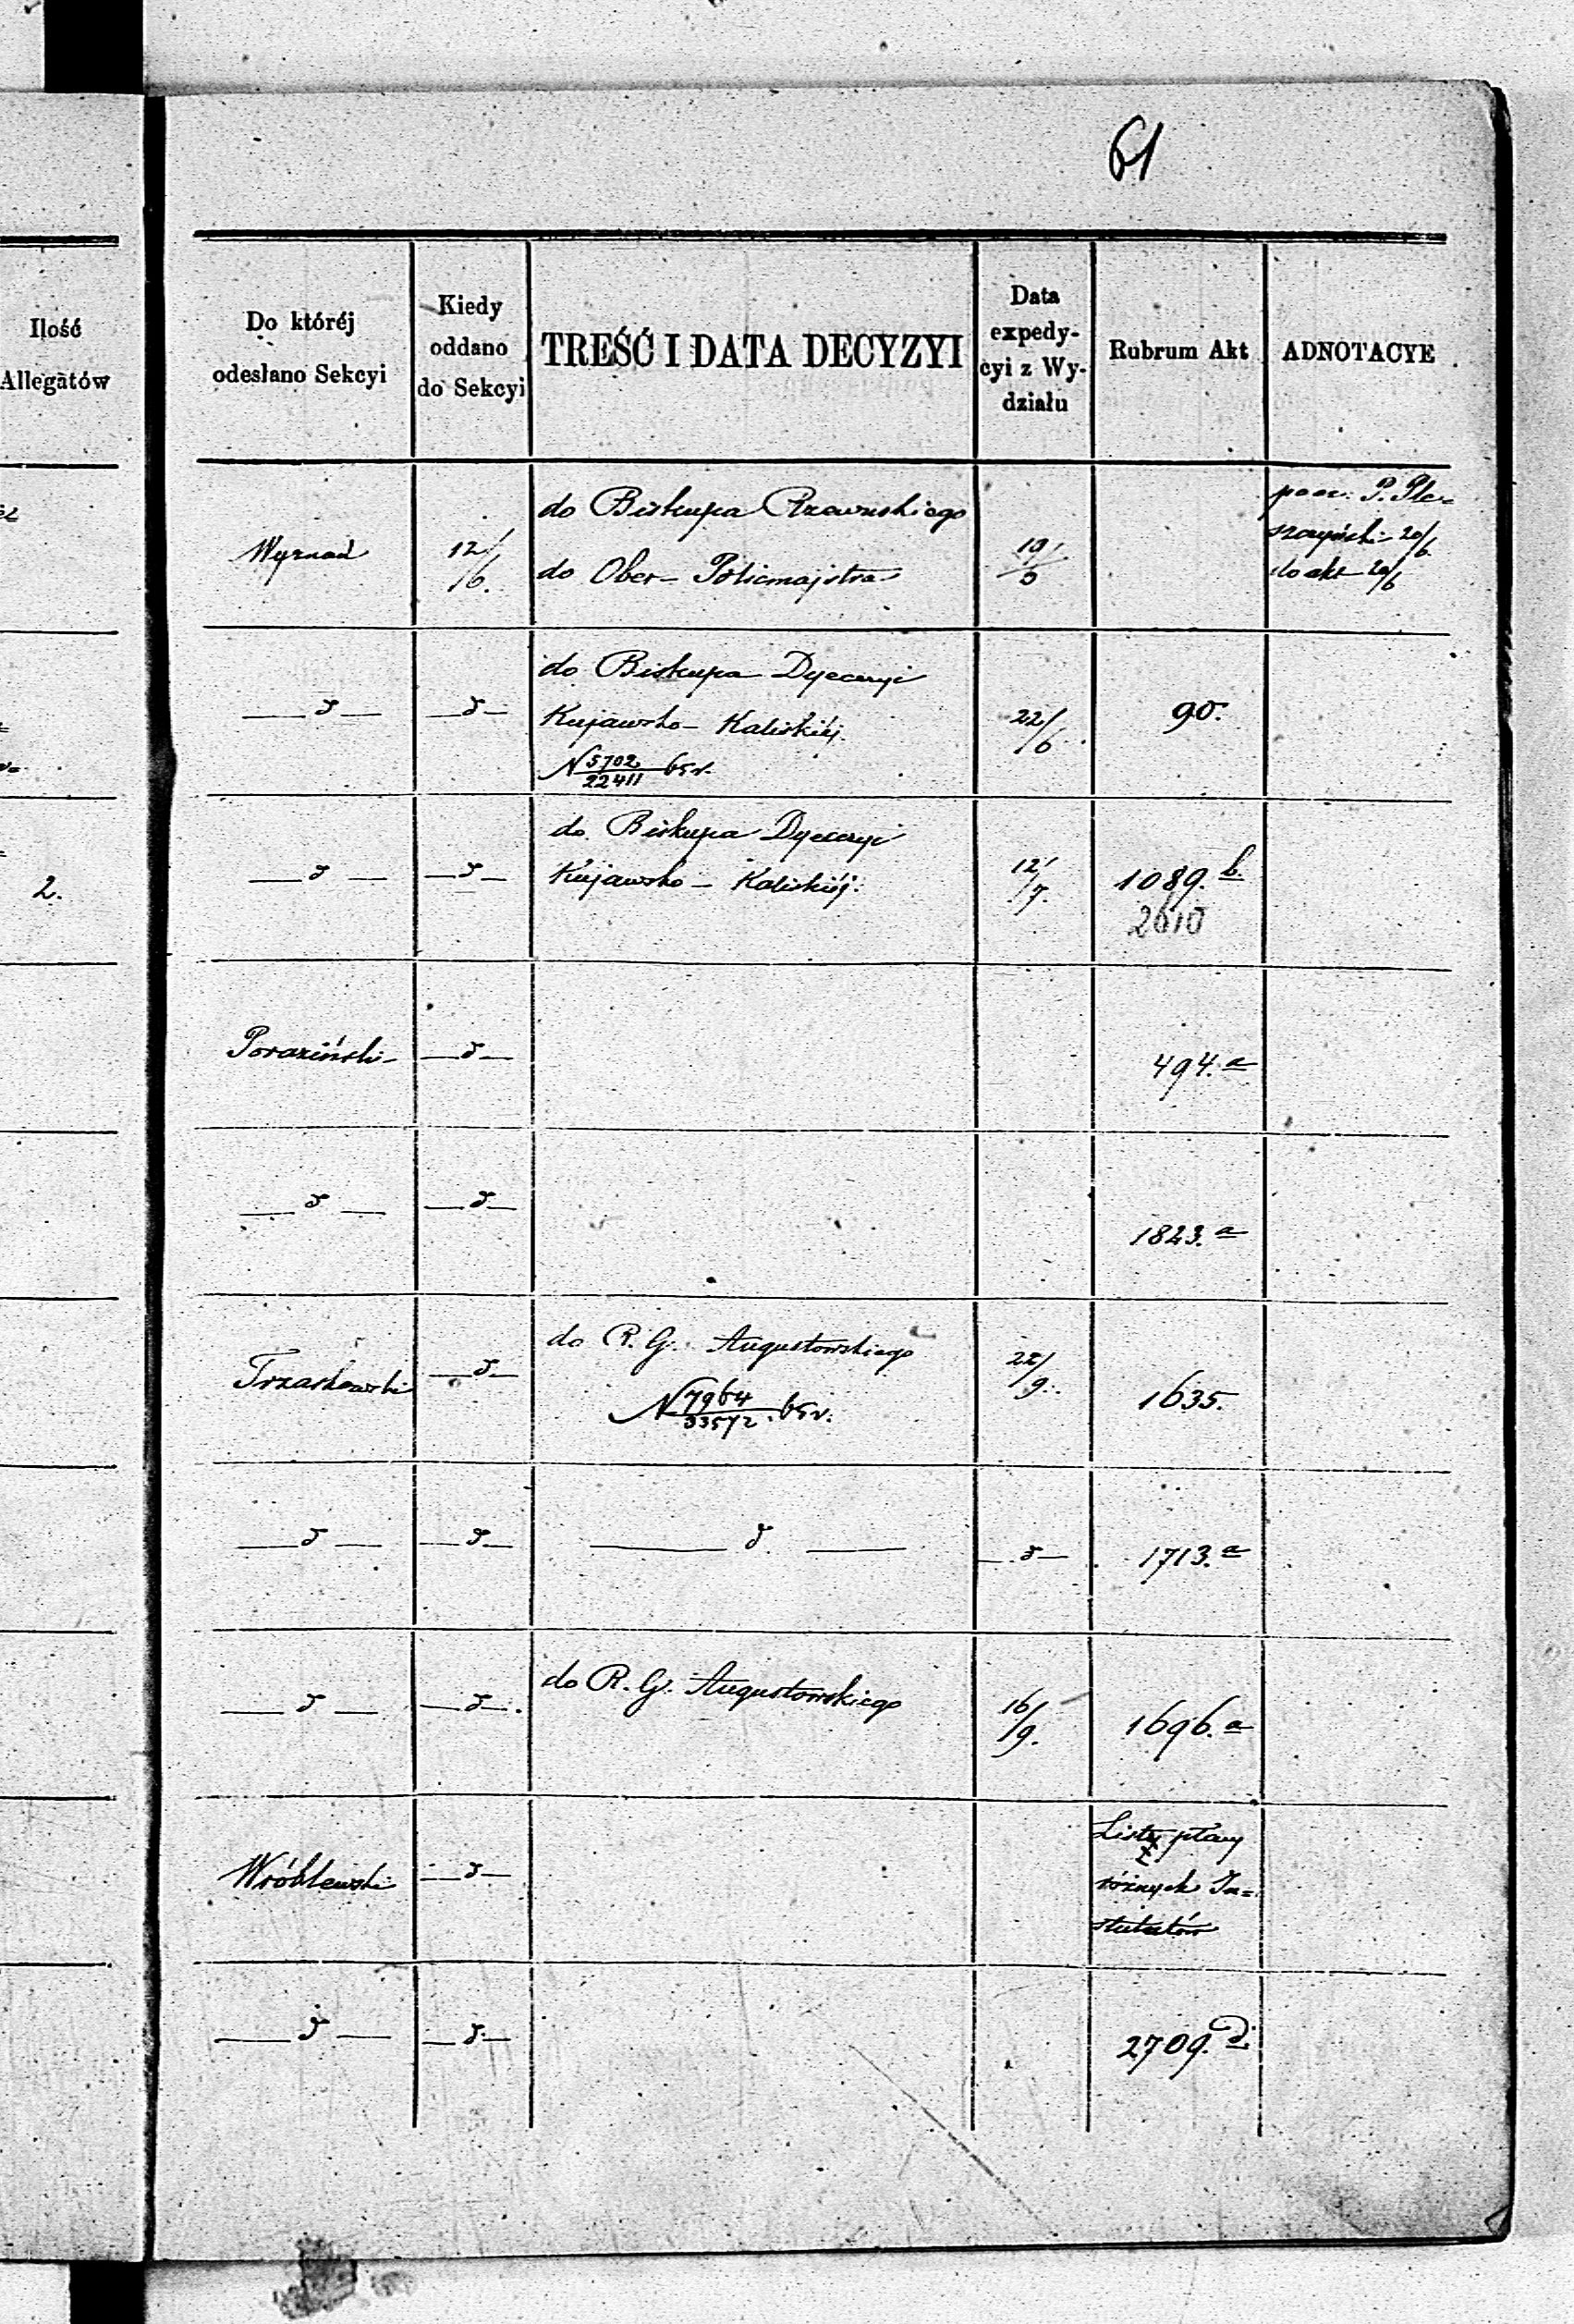 61
Ilość
Allegatów
Do któréj
odesłano Sekcyi
Kiedy
oddano
do Sekcyi
TREŚĆ I DATA DECYZYI
Data
expedy-
cyi z Wy-
działu
Rubrum Akt
ADNOTACYE
Wyrzad
12/6.
do Biskupa Rzewuskiego
do Ober-Policmajstra
19/6
20/6
do akt 20/6
— d —
— d —
do Biskupa Dyecezyi
Kujawsko-Kaliskiéj
N 5702/22411 65 r.
22/6
90.
2.
— d —
— d —
do Biskupa Dyecezyi
Kujawsko-Kaliskiéj.
12/7.
1089. b.
2610
Poraziński
— d —
494. a
— d —
— d —
1823. a
Trzaskowski
— d —
do R. G. Augustowskiego
N 7964/33572 . 65 r.
22/9.
1635.
— d —
— d —
— d. —
— d —
1713. a
— d —
— d —.
do R. G. Augustowskiego
16/9.
1696. a
Wróblewski
— d —
Listy płacy
z
różnych In=
stytutów
— d —
— d —
2709. D.